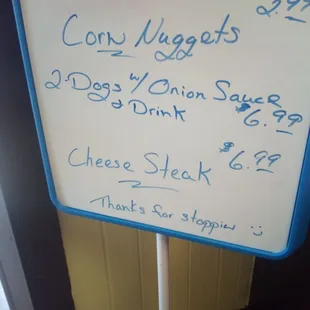 2.99
Corn Nuggets
2-Dogs w/ Onion Sauce
& Drink $6.99
Cheese Steak $6.99
Thanks for stoppin :)